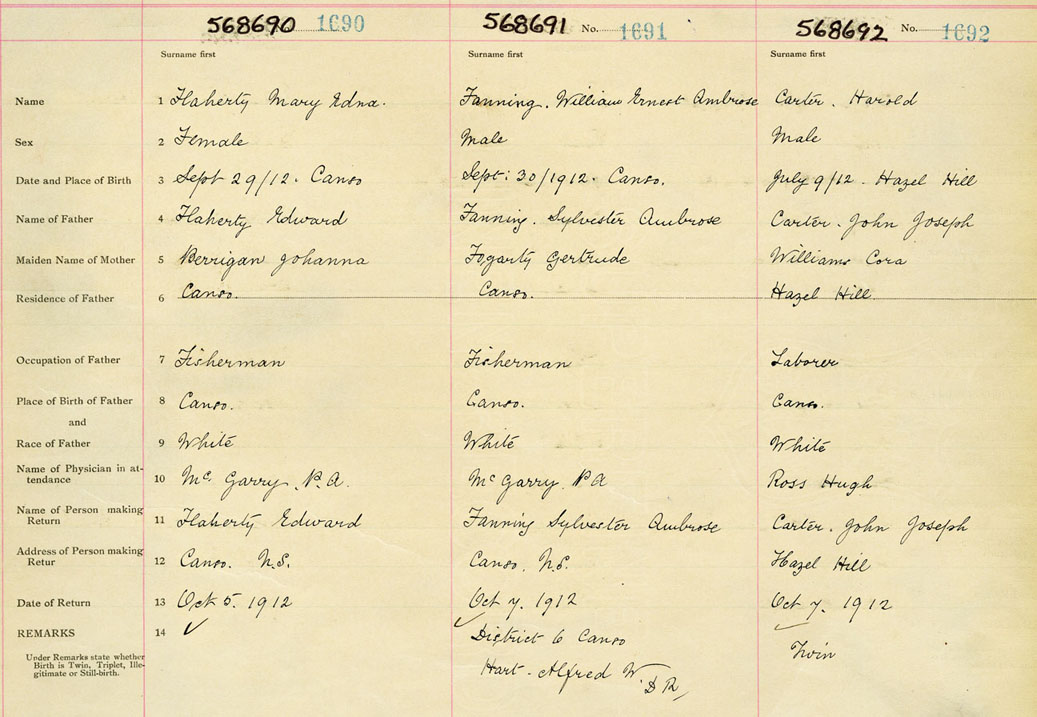 568690 1690 568691 No. 1691 568692 No. 1692
Surname first Surname first Surname first
Name 1 Flaherty Mary Edna. Fanning. William Ernest Ambrose Carter. Harold
Sex 2 Female Male Male
Date and Place of Birth 3 Sept 29/12. Canso Sept: 30/1912. Canso. July 9/12 - Hazel Hill
Name of Father 4 Flaherty Edward Fanning. Sylvester Ambrose Carter. John Joseph
Maiden Name of Mother 5 Berrigan Johanna Fogarty Gertrude Williams Cora
Residence of Father 6 Canso. Canso. Hazel Hill.
Occupation of Father 7 Fisherman Fisherman Laborer
Place of Birth of Father 8 Canso. Canso. Canso.
and
Race of Father 9 White White White
Name of Physician in at-
tendance 10 Mc Garry. P.A. Mc Garry P A Ross Hugh
Name of Person making
Return 11 Flaherty Edward Fanning Sylvester Ambrose Carter. John Joseph
Address of Person making
Retur 12 Canso. N.S. Canso. N.S. Hazel Hill
Date of Return 13 Oct 5. 1912 Oct 7. 1912 Oct 7. 1912
REMARKS 14 ✓ District 6 Canso Twin
Under Remarks state whether
Birth is Twin, Triplet, Ille-
gitimate or Still-birth.
Hart - Alfred W. D R,